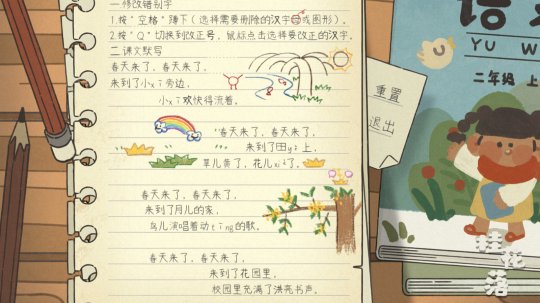 一修改错别字
1.按"空格"蹲下(选择需要删除的汉字或图形)。
2.按"Q"切换到改正号，鼠标点击选择要改正的汉字。
二课文默写
春天来了，春天来了，
来到了小xī旁边，
小xī欢快得流着。
春天来了，春天来了，
来到了田yě上，
草儿黄了，花儿xiè了。
春天来了，春天来了，
来到了月儿的家，
鸟儿演唱着动tīng的歌。
春天来了，春天来了，
来到了花园里，
校园里充满了洪亮书声。
重置
退出
语文
YU W
二年级 上
桂花落